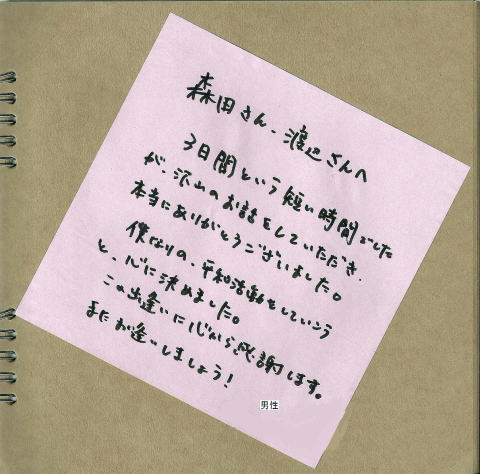 森田さん、渡辺さんへ
3日間という短い時間でした
が、沢山のお話をしていただき、
本当にありがとうございました。
僕なりの、平和活動をしていこう
と、心に決めました。
この出逢いに心から感謝します。
またお逢いしましょう!
男性